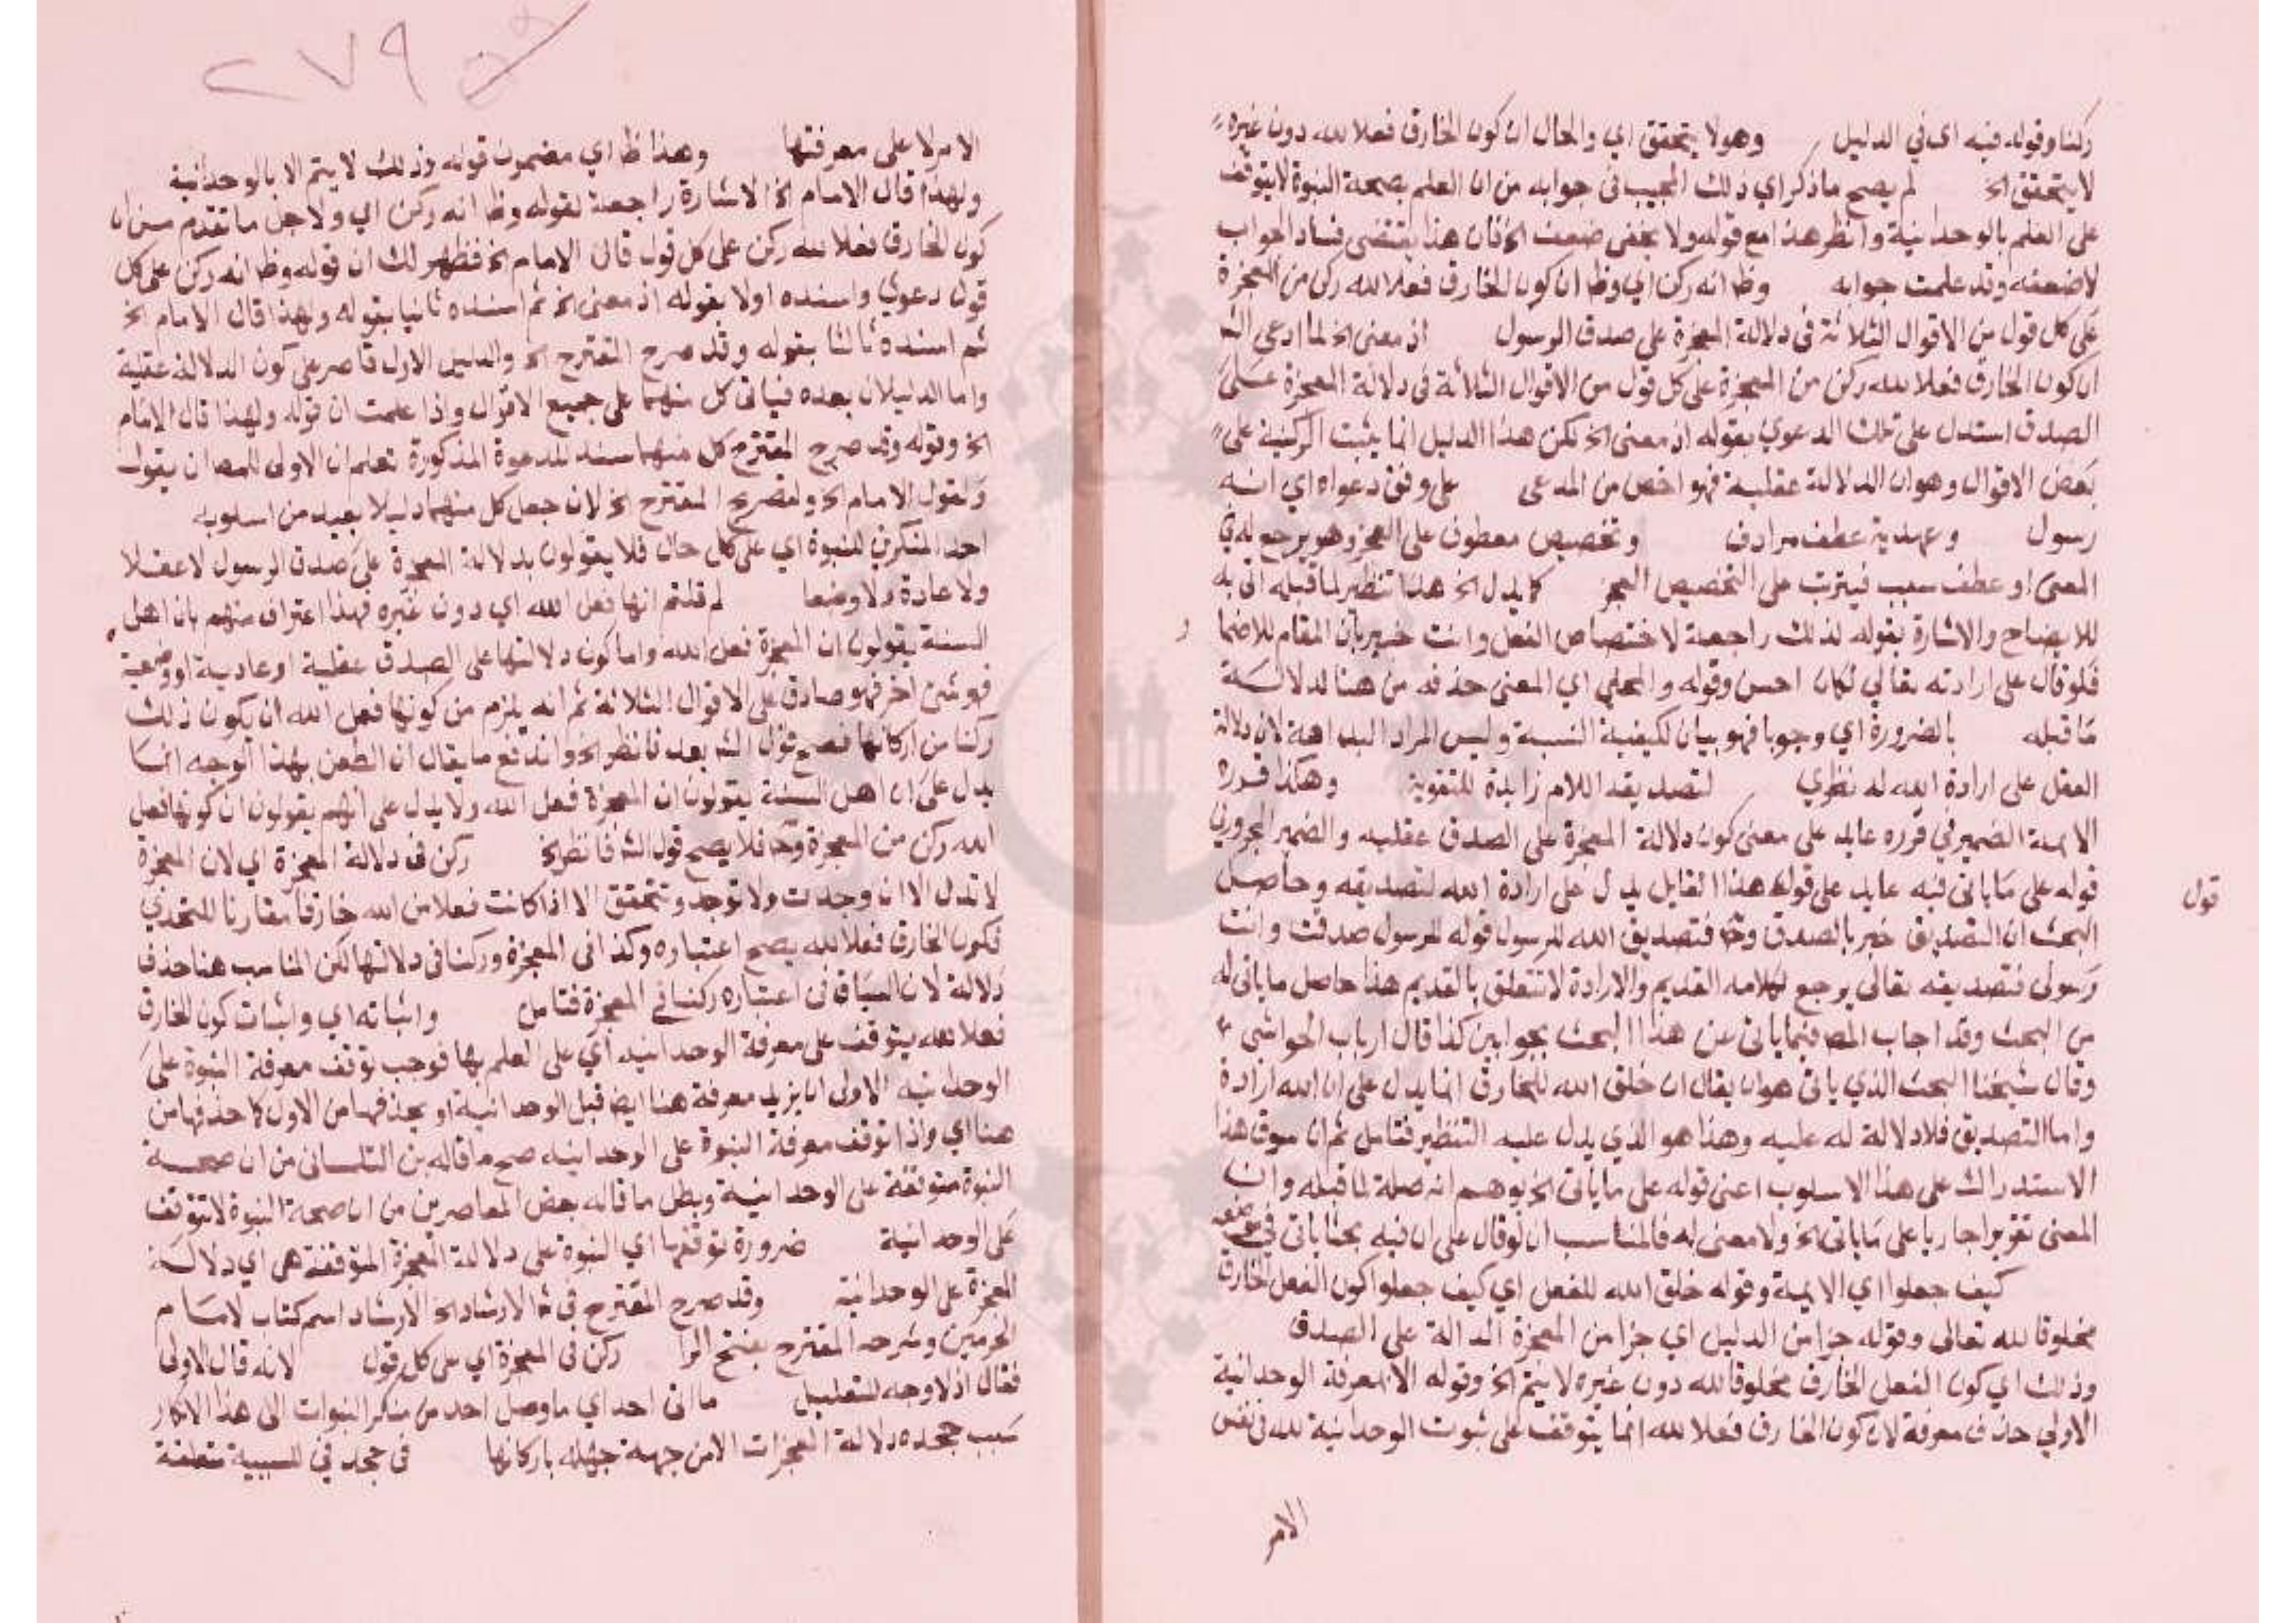 ركنا وقوله فيه اي في الدليل وهو لا يتحقق اي والحال ان كون الخارق فعلا لله دون غيره
لا يتحقق الخ لم يصح ما ذكر اي ذلك المجيب في جوابه من ان العلم بصحة النبوة لا يتوقف
على العلم بالوحدانية وانظر هذا مع قوله ولا يخفى ضعف الخ فان هذا يقتضى فساد الجواب
لا ضعفه وقد علمت جوابه وظ انه ركن اي وظ ان كون الخارق فعلا لله ركن من المعجزة
على كل قول من الاقوال الثلاثة في دلالة المعجزة على صدق الرسول اذ معنى الخ لما ادعى الشه
ان كون الخارق فعلا لله ركن من المعجزة على كل قول من الاقوال الثلاثة في دلالة المعجزة على
الصدق استدل على تلك الدعوي بقوله اذ معنى الخ لكن هذا الدليل انما يثبت الركنية على
بعض الاقوال وهو ان الدلالة عقلية فهو اخص من المدعى على وفق دعواه اي انه
رسول وعهدية عطف مرادف وتخصيص معطوف على العجز وهو يرجع له في
المعنى او عطف سبب فيترتب على التخصيص العجز كما يدل الخ هذا تنظير لما قبله اتى به
للايضاح والاشارة بقوله لذلك راجعة لاختصاص الفعل وانت خبير بان المقام للاضما
فلو قال على ارادته تعالى لكان احسن وقوله والمحلي اي المعنى حذفه من هنا لدلالة
ما قبله بالضرورة اي وجوبا فهو بيان لكيفية النسبة وليس المراد البداهة لان دلالة
العقل على ارادة الله له نظري لتصديقه اللام زايدة للتقوية وهكذا قرره
الايمة الضمير في قرره عايد على معنى كون دلالة المعجزة على الصدق عقلية والضمير المجرور في
قوله على ما ياتى فيه عايد على قوله هذا القايل يدل على ارادة الله لتصديقه وحاصل
قول
البحث ان التصديق خبر بالصدق وح فتصديق الله للرسول قوله للرسول صدقت وانت
رسولى فتصديقه تعالى يرجع لكلامه القديم والارادة لا تتعلق بالقديم هذا حاصل ما ياتى له
من البحث وقد اجاب المص فيما ياتى عن هذا البحث بجوابين كذا قال ارباب الحواشى
وقال شيخنا البحث الذي ياتى هو ان يقال ان خلق الله للخارق انما يدل على ان الله ارادة
واما التصديق فلا دلالة له عليه وهذا هو الذي يدل عليه التنظير فتامل ثم ان سوق هذا
الاستدراك على هذا الاسلوب اعنى قوله على ما ياتى الخ يوهم انه صلة لما قبله وان
المعنى تقريرا جاريا على ما ياتى الخ ولا معنى له فالمناسب ان لو قال على ان فيه بحثا ياتى في
كيف جعلوا اي الايمة وقوله خلق الله للفعل اي كيف جعلوا كون الفعل الخارق
مخلوقا لله تعالى وقوله جزا من الدليل اي جزا من المعجزة الدالة على الصدق
وذلك اي كون الفعل الخارق مخلوقا لله دون غيره لا يتم الخ وقوله الا بمعرفة الوحدانية
الاولي حذف معرفة لان كون الخارق فعلا لله انما يتوقف على ثبوت الوحدانية لله في نفس
الامر
٢٧٩
الامر لا على معرفتها وهذا ظ اي مضمون قوله وذلك لا يتم الا بالوحدانية
ولهذا قال الامام الخ الاشارة راجعة لقوله وظ انه ركن اي ولاجل ما تقدم من ان
كون الخارق فعلا لله ركن على كل قول قال الامام الخ فظهر لك ان قوله وظ انه ركن على كل
قول دعوي واسنده اولا بقوله اذ معنى الخ ثم اسنده ثانيا بقوله ولهذا قال الامام الخ
ثم اسنده ثالثا بقوله وقد صرح المقترح الخ والدليل الاول قاصر على كون الدلالة عقلية
واما الدليلان بعده فياتى كل منهما على جميع الاقوال واذا علمت ان قوله ولهذا قال الامام
الخ وقوله وقد صرح المقترح كل منهما سند للدعوة المذكورة تعلم ان الاولى للمص ان يقول
ولقول الامام الخ ولتصريح المقترح الخ لان جعل كل منهما دليلا بعيد من اسلوبه
احد المنكرين للنبوة اي على كل حال فلا يقولون بدلالة المعجزة على صدق الرسول لا عقلا
ولا عادة ولا وضعا لم قلتم انها فعل الله اي دون غيره فهذا اعتراف منهم بان اهل
السنة يقولون ان المعجزة فعل الله واما كون دلالتها على الصدق عقلية او عادية او وضعية
فهو شئ اخر فهو صادق على الاقوال الثلاثة ثم انه يلزم من كونها فعل الله ان يكون ذلك
ركنا من اركانها فصح قول الشه بعد فانظر الخ واندفع ما يقال ان الطعن بهذا الوجه انما
يدل على ان اهل السنة يقولون ان المعجزة فعل الله ولا يدل على انهم يقولون ان كونها فعل
الله ركن من المعجزة وح فلا يصح قول الشه فانظر الخ ركن في دلالة المعجزة اي لان المعجزة
لا تدل الا ان وجدت ولا توجد وتتحقق الا اذا كانت فعلا من الله خارقا مقارنا للتحدي
فكون الخارق فعلا لله يصح اعتباره وكذا في المعجزة وركنا في دلالتها لكن المناسب هنا حذف
دلالة لان السياق في اعتباره ركنا في المعجزة فتامل واثباته اي واثبات كون الخارق
فعلا لله يتوقف على معرفة الوحدانية اي على العلم بها فوجب توقف معرفة النبوة على
الوحدانية الاولى ان يزيد معرفة هنا ايضا قبل الوحدانية او يحذفها من الاول كما حذفها من
هنا اي واذا توقف معرفة النبوة على الوحدانية صح ما قاله بن التلمسانى من ان صحة
النبوة متوقفة على الوحدانية وبطل ما قاله بعض المعاصرين من ان صحة النبوة لا تتوقف
على الوحدانية ضرورة توقفها اي النبوة على دلالة المعجزة المتوقفة هى اي دلالة
المعجزة على الوحدانية وقد صرح المقترح في شر الارشاد الخ الارشاد اسم كتاب لامام
الحرمين وشرحه المقترح بفتح الرا ركن في المعجزة اي على كل قول لانه قال الاولى
فقال اذ لا وجه للتعليل ما اتى احد اي ما وصل احد من منكر النبوات الى هذا الانكار
بسبب جحده دلالة المعجزات الا من جهة جهله باركانها في جحد في للسببية متعلقة